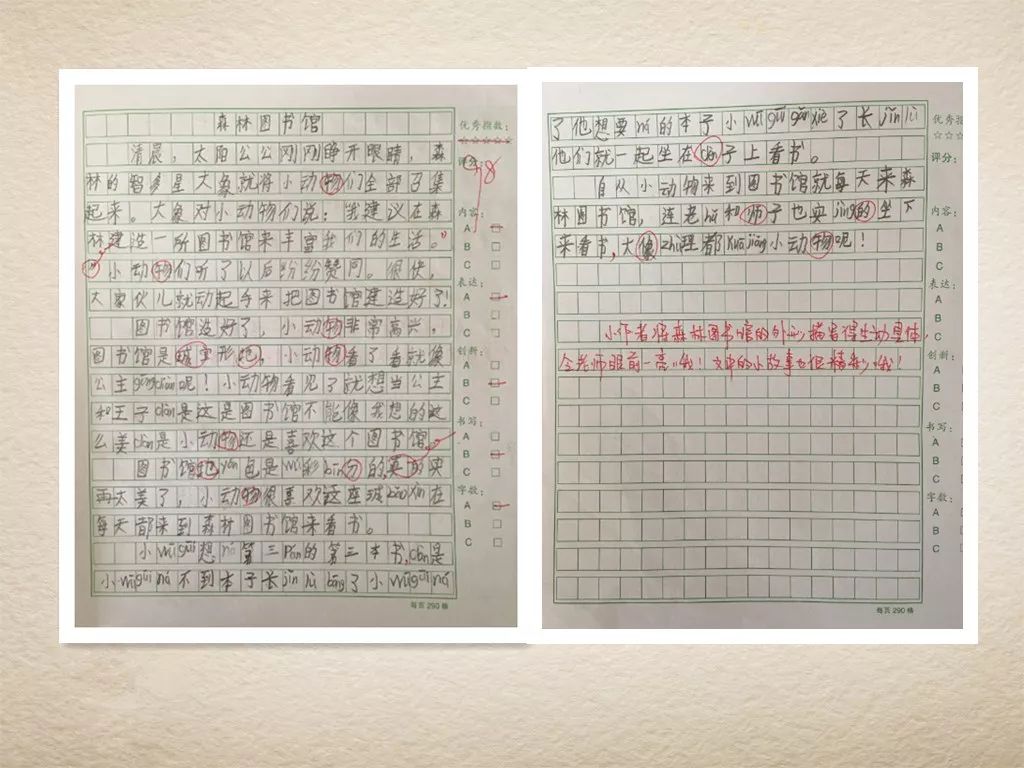 森林图书馆
清晨，太阳公公刚刚睁开眼睛，森
林的智多星大象就将小动物们全部召集
起来。大象对小动物们说：我建议在森
林建造一所图书馆来丰富我们的生活。”
小动物们听了以后纷纷赞同。很快，
大家伙儿就动起手来把图书馆建造好了！
图书馆造好了，小动物非常高兴，
图书馆是城宝形的，小动物看了看就像
公主gōngdiàn呢！小动物看见了就想当公主
和王子dàn是这是图书馆不能像我想的这
么美dàn是小动物还是喜欢这个图书馆。
图书馆地yán色是wǔ彩bīn分的，真的
再太美了，小动物很喜欢这座城bǎo在
每天都来到森林图书馆来看书。
小wūguī想ná第三pái的第三本书，dàn是
小wūguī ná不到本子长jǐng lù bāng了小wūguī ná
了他想要ná的本子小wūguī gǎn xiè了长jǐng lù
他们就一起坐在子上看书。
自从小动物来到图书馆就每天来森
林图书馆，连老hǔ和师子也安jìng的坐下
来看书，大像zhǔ理都kuā jiǎng小动物呢！
小作者将森林图书馆的外形描写得生动具体，
令老师眼前一亮哦！文中的小故事也很精彩哦！
优秀指数：
☆☆☆☆☆
评分：
98
内容：
A
B
C
表达：
A
B
C
创新：
A
B
C
书写：
A
B
C
字数：
A
B
C
每页290格
优秀指
☆☆☆
评分：
内容：
A
B
C
表达：
A
B
C
创新：
A
B
C
书写：
A
B
C
字数：
A
B
C
每页290格